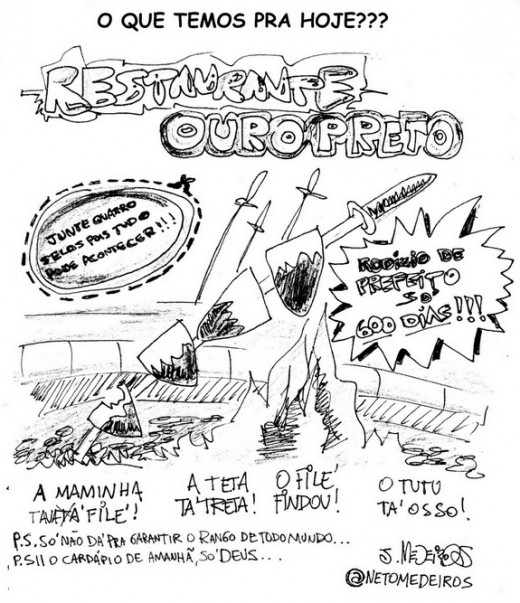 O QUE TEMOS PRA HOJE???
RESTAURANTE
OURO PRETO
JUNTE QUATRO
SELOS POIS TUDO
PODE ACONTECER!!!
RODÍZIO DE
PREFEITO
SÓ
600 DIAS!!!
A MAMINHA
FILÉ!
A TETA
TÁ TRETA!
O FILÉ
FINDOU!
O TUTU
TÁ OSSO!
P.S. SÓ NÃO DÁ PRA GARANTIR O RANGO DE TODO MUNDO...
P.S II O CARDÁPIO DE AMANHÃ, SÓ DEUS...
J. MEDEIROS
@NETOMEDEIROS